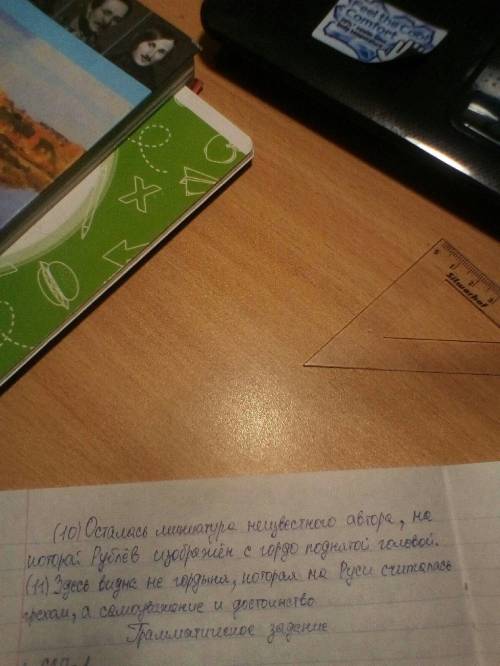 Feel the Cool
Comfort
X
Silwerhof
(10) Осталась миниатюра неизвестного автора, на
которой Рублёв изображён с гордо поднятой головой.
(11) Здесь видна не гордыня, которая на Руси считалась
грехом, а самоуважение и достоинство
Грамматическое задание